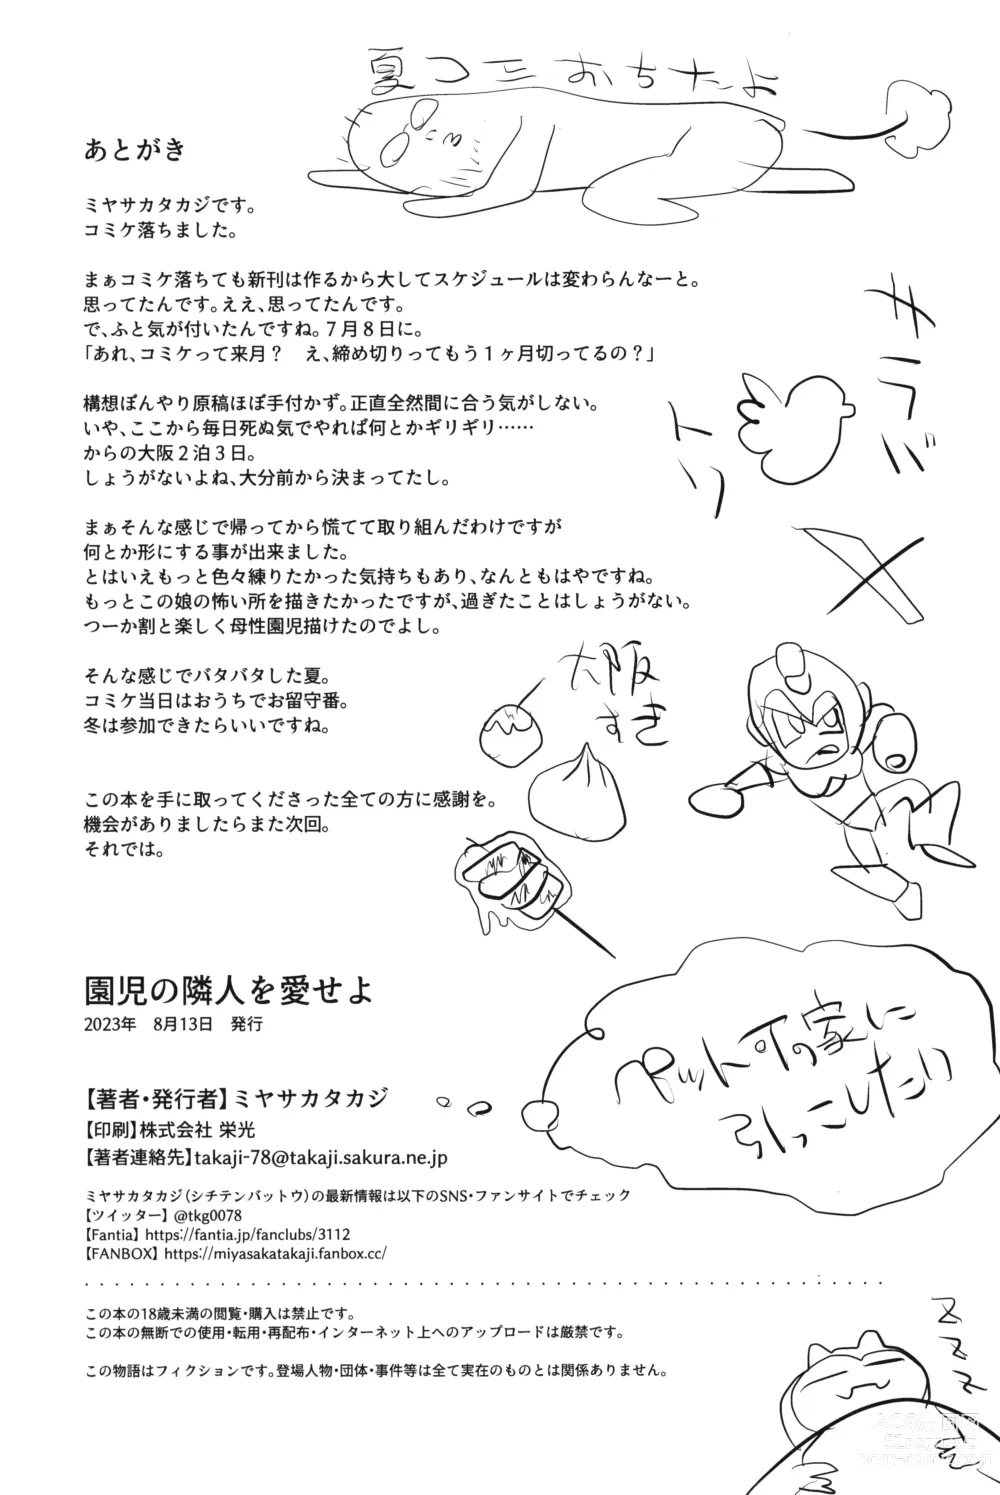 夏コミおちたよ
あとがき
ミヤサカタカジです。
コミケ落ちました。
まぁコミケ落ちても新刊は作るから大してスケジュールは変わらんなーと。
思ってたんです。ええ、思ってたんです。
で、ふと気が付いたんですね。7月8日に。
「あれ、コミケって来月？　え、締め切りってもう1ヶ月切ってるの？」
構想ぼんやり原稿ほぼ手付かず。正直全然間に合う気がしない。
いや、ここから毎日死ぬ気でやれば何とかギリギリ……
からの大阪2泊3日。
しょうがないよね、大分前から決まってたし。
まぁそんな感じで帰ってから慌てて取り組んだわけですが
何とか形にする事が出来ました。
とはいえもっと色々練りたかった気持ちもあり、なんともはやですね。
もっとこの娘の怖い所を描きたかったですが、過ぎたことはしょうがない。
つーか割と楽しく母性園児描けたのでよし。
そんな感じでバタバタした夏。
コミケ当日はおうちでお留守番。
冬は参加できたらいいですね。
この本を手に取ってくださった全ての方に感謝を。
機会がありましたらまた次回。
それでは。
サラバ
トリ
大阪
すき
園児の隣人を愛せよ
2023年　8月13日　発行
【著者・発行者】ミヤサカタカジ
【印刷】株式会社 栄光
【著者連絡先】takaji-78@takaji.sakura.ne.jp
ペット可の家に
引っこしたい
ミヤサカタカジ（シチテンバットウ）の最新情報は以下のSNS・ファンサイトでチェック
【ツイッター】 @tkg0078
【Fantia】 https://fantia.jp/fanclubs/3112
【FANBOX】 https://miyasakatakaji.fanbox.cc/
この本の18歳未満の閲覧・購入は禁止です。
この本の無断での使用・転用・再配布・インターネット上へのアップロードは厳禁です。
この物語はフィクションです。登場人物・団体・事件等は全て実在のものとは関係ありません。
Z
Z
Z
Z